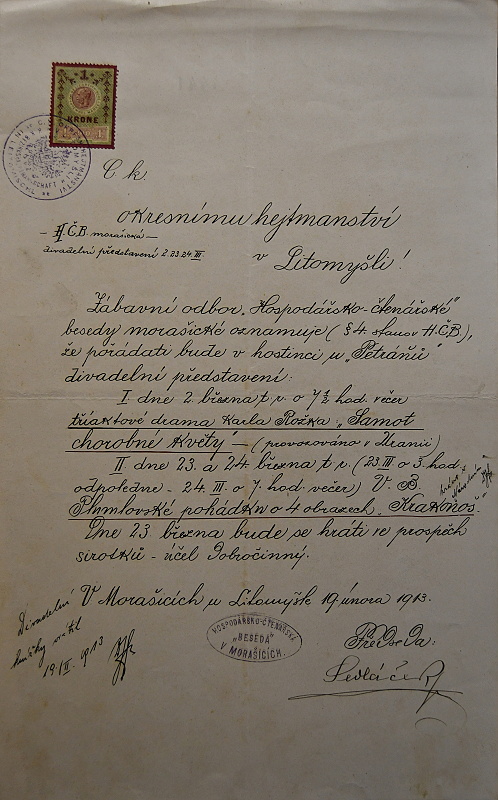 1
KRONE
C. k.
okresnímu hejtmanství
H.Č.B. morašická
divadelní představení 2. 23. 24. III.
v Litomyšli!
Zábavní odbor „Hospodářsko-čtenářské"
besedy morašické oznamuje (§ 4. stanov H.Č.B),
že pořádati bude v hostinci u „Petráňů"
divadelní představení:
I. dne 2. března t. r. o 7½ hod. večer
tříaktové drama Karla Rožka: „Samot
chorobné květy" – (provozováno v Uranii)
II. dne 23. a 24. března t. r. (23. III. o 3. hod.
odpoledne – 24. III. o 7. hod. večer) V. B.
Plumlovské pohádku o 4 obrazech „Krakonoš."
Dne 23. března bude se hráti ve prospěch
sirotků – účel dobročinný.
V Morašicích u Litomyšle 19. února 1913.
Divadelní
knížky vrátil
19/II. 1913
HOSPODÁŘSKO-ČTENÁŘSKÁ
„BESEDA"
V MORAŠICÍCH.
Předseda:
Sedláček